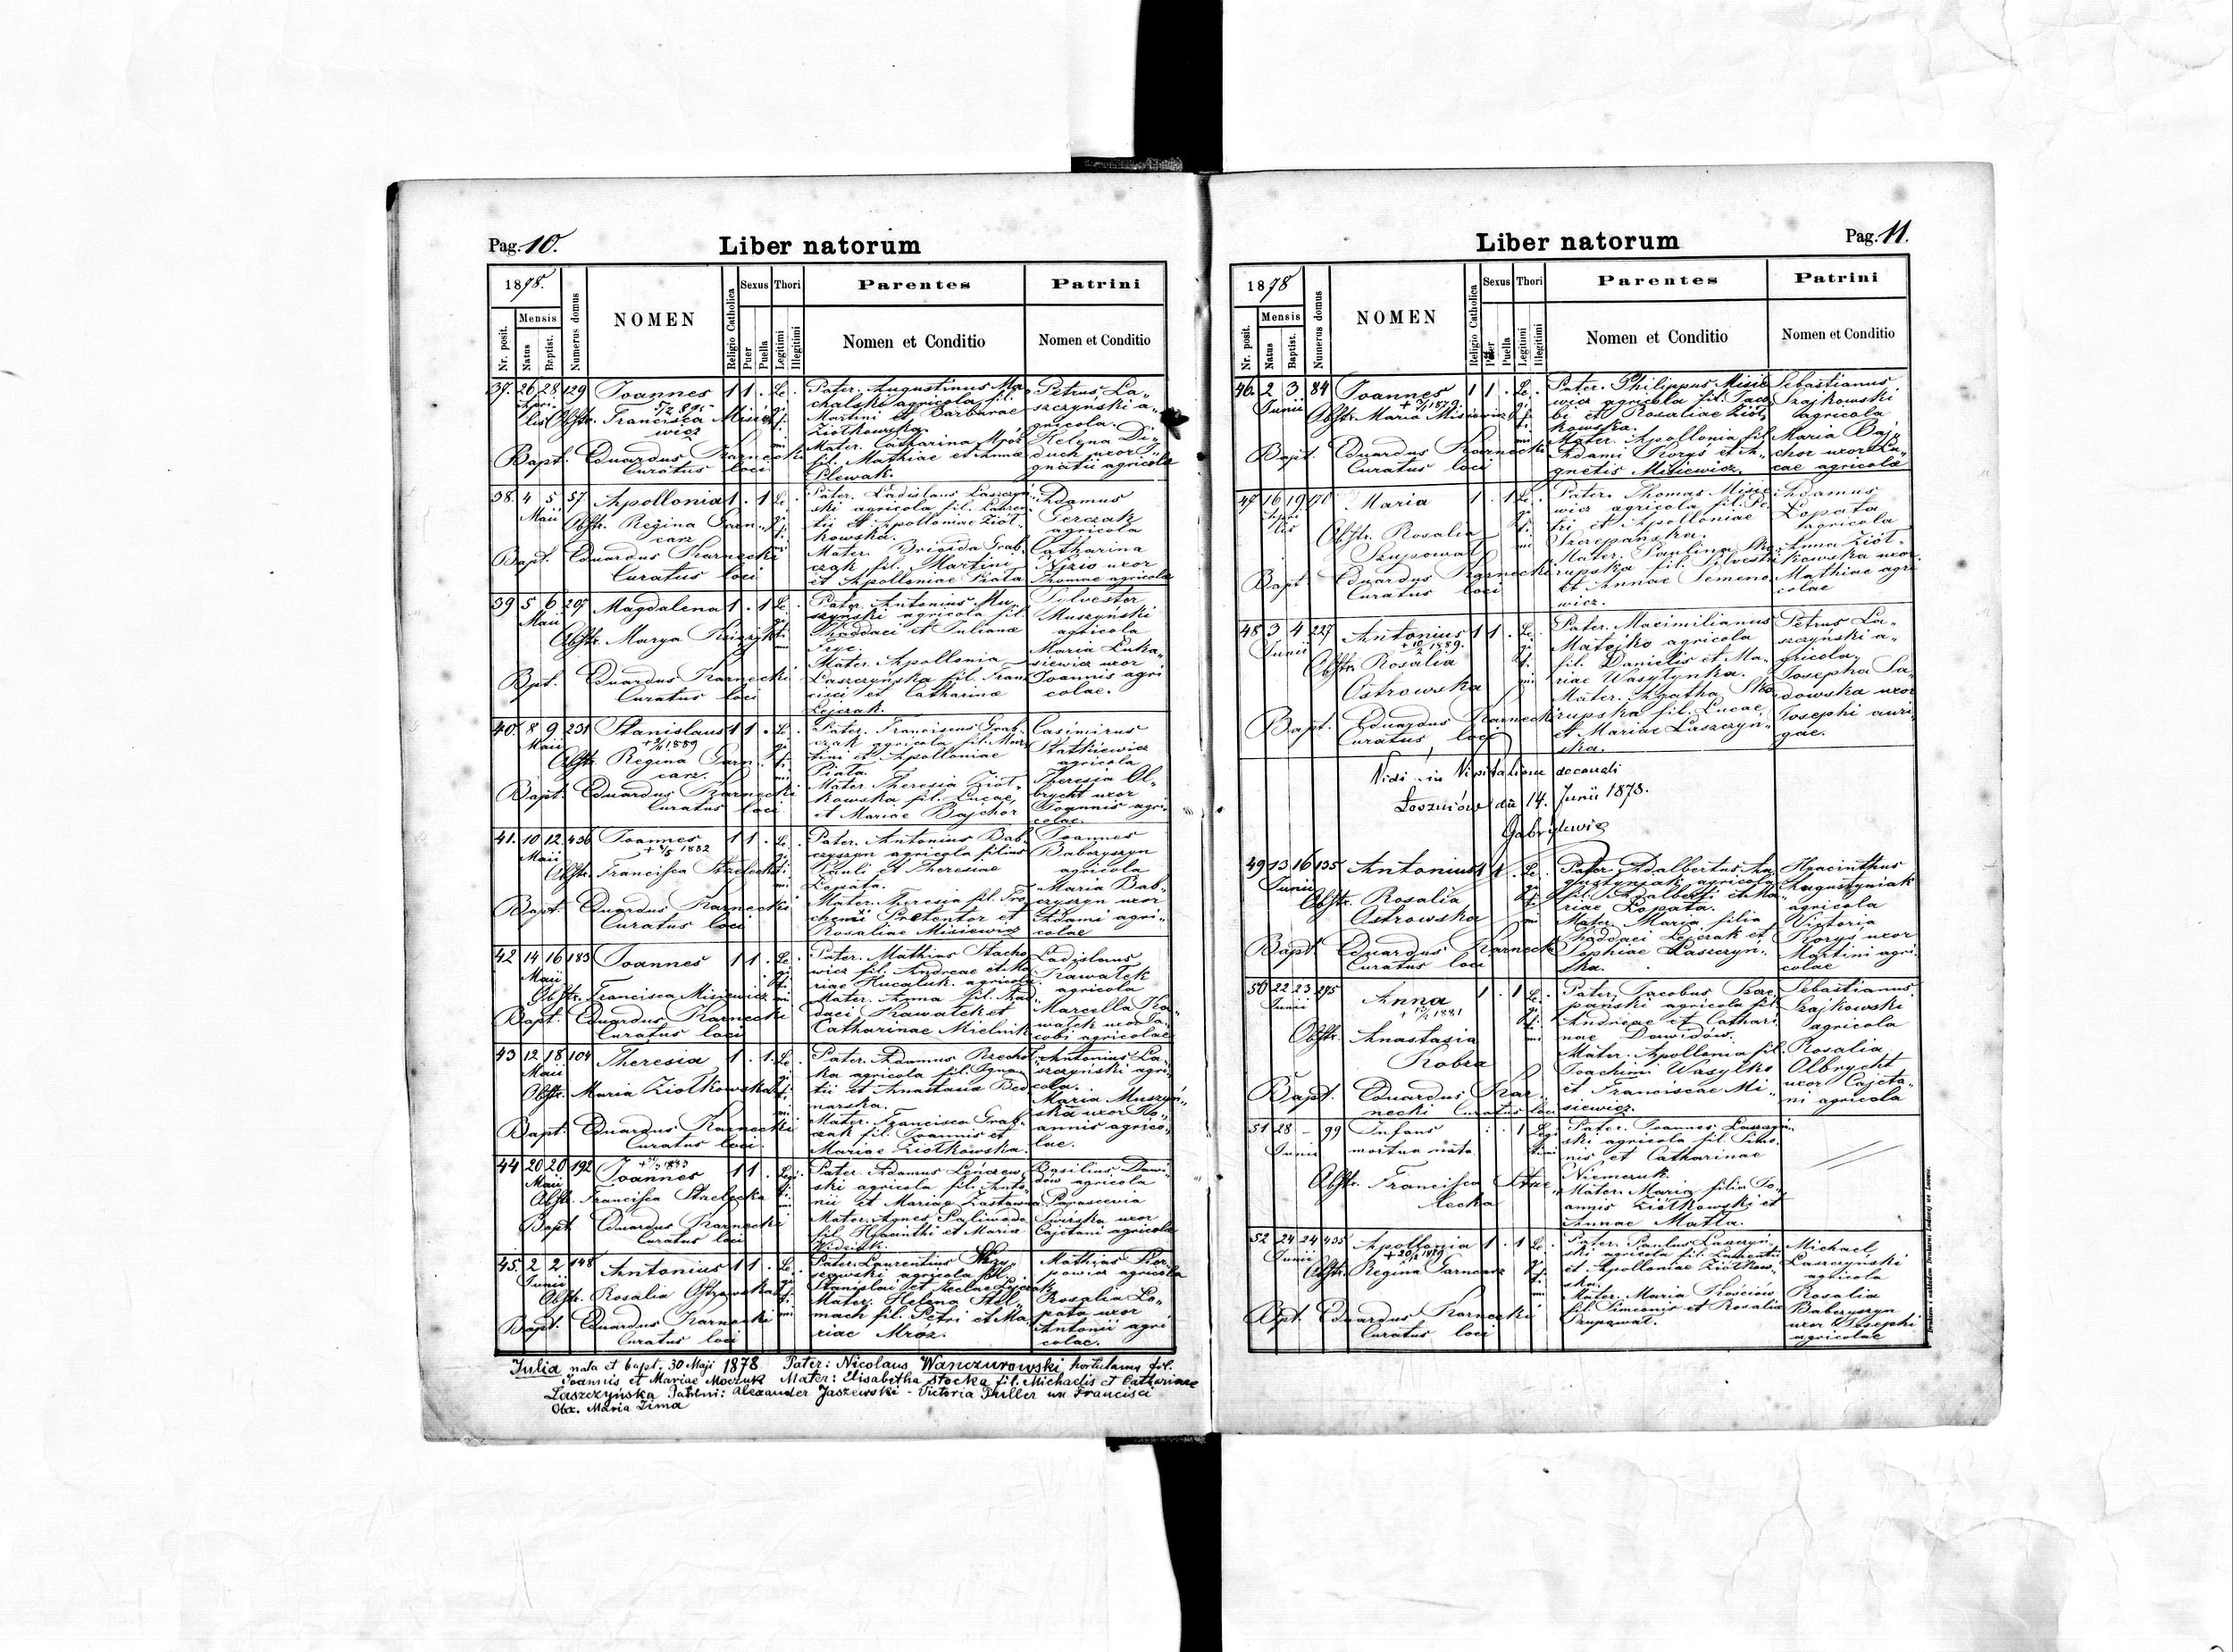 Pag. 10.
Liber natorum
1878.
Nr. posit.
Mensis
Natus
Baptist.
Numerus domus
NOMEN
Religio Catholica
Sexus
Puer
Puella
Thori
Legitimi
Illegitimi
Parentes
Nomen et Conditio
Patrini
Nomen et Conditio
37. 26 28 129 Joannes 1 1 .
Obstr. Francisca Misiewicz
Bapt. Eduardus Karnecki
Curatus loci
Pater. Augustinus
agricola fil.
Martini et Barbarae
Ziołkowska.
Mater. Catharina Mróz
fil. Mathiae et Annae
Plewak.
Petrus La-
szczynski a-
gricola.
Helena Di-
duch uxor I-
gnatii agricola
38. 4 5 57 Apollonia 1 . 1
Maii
Obstr. Regina Garn-
carz
Bapt. Eduardus Karnecki
Curatus loci
Pater. Ladislaus Laszczyń-
ski agricola fil. Lauren-
tii et Apolloniae Zioł-
kowska.
Mater. Brigida Grab-
czak fil. Martini
et Apolloniae Piata
Adamus
agricola
Catharina
uxor
Thomae agricola
39 5 6 207 Magdalena 1 . 1
Maii
Obstr. Marya
Bpt. Eduardus Karnecki
Curatus loci
Pater. Antonius Mu-
szyński agricola fil.
Thaddaei et Julianae
Mater. Apollonia
Laszczyńska fil. Fran-
cisci et Catharinae
Lejczak.
Sylvester
Muszyński
agricola
Maria Luka-
siewicz uxor
Joannis agri
colae.
40. 8 9 231 Stanislaus 1 1 .
Maii
Obstr. Regina Garn-
carz.
Bapt. Eduardus Karnecki
Curatus loci
Pater. Franciscus Grab-
czak agricola fil. Mar-
tini et Apolloniae
Piata.
Mater. Theresia Zioł-
kowska fil. Lucae,
et Mariae Bajchor
Casimirus
Statkiewicz
agricola
Theresia Ol-
brycht uxor
Joannis agri-
colae.
41. 10 12 436 Joannes 1 1 .
Maii
Obstr. Francisca Strelecka
Bapt. Eduardus Karnecki
Curatus loci
Pater. Antonius Bab-
czyszyn agricola filius
Pauli et Theresiae
Lopata.
Mater. Theresia fil.
Pretentor et
Rosaliae Misiewicz
Joannes
Babczyszyn
agricola
Maria Bab-
czyszyn uxor
Adami agri-
colae
42 14 16 183 Joannes 1 1 .
Maii
Obstr. Francisca Misiewicz
Bapt. Eduardus Karnecki
Curatus loci
Pater. Mathias Stacho-
wicz fil. Andreae et Ma-
riae Hucaluk agricola
Mater. Anna fil. Thad-
daei Kawałek et
Catharinae Mielnik
Ladislaus
Kawałek
agricola
Marcella Ka-
wałek uxor Ja-
cobi agricolae
43 12 18 104 Theresia 1 . 1
Maii
Obstr. Maria Ziołkowska
Bapt. Eduardus Karnecki
Curatus loci
Pater. Adamus
agricola fil. Igna-
tii et Anastasia Bed-
narska.
Mater. Francisca Grab-
czak fil. Joannis et
Mariae Ziołkowska.
Antonius La-
szczyński agri-
cola.
Maria Muszyń-
ska uxor Jo-
annis agrico-
lae.
44 20 20 192 Joannes 1 1 .
Maii
Obstr. Francisca Strelecka
Bapt Eduardus Karnecki
Curatus loci
Pater. Adamus
agricola fil. Anto-
nii et Mariae
Mater. Agnes Paliwoda
fil. Hyacinthi et Mariae
Basilius Dawi-
dów agricola
Parascevia
Swirska uxor
Cajetani agricola
45. 2 2 148 Antonius 1 1 .
Junii
Obstr. Rosalia Ostrowska
Bapt. Eduardus Karnecki
Curatus loci
Pater. Laurentius
agricola fil.
Stanislai et Teclae Lejczak
Mater. Helena Stel-
mach fil. Petri et Ma-
riae Mróz.
Mathias Kar-
powicz agricola
Rosalia Lo-
pata uxor
Antonii agri
colae.
Julia nata et bapt. 30 Maji 1878 Pater: Nicolaus Wanczurowski, hortulanus fil.
Joannis et Mariae Moczuk Mater: Elisabetha Stocka fil. Michaelis et Catharinae
Laszczyńska Patrini: Alexander Jaszewski - Victoria Puller ux Francisci
Obx. Maria Zima
Pag. 11.
Liber natorum
1878
Nr. posit.
Mensis
Natus
Baptist.
Numerus domus
NOMEN
Religio Catholica
Sexus
Puer
Puella
Thori
Legitimi
Illegitimi
Parentes
Nomen et Conditio
Patrini
Nomen et Conditio
46. 2 3 84 Joannes 1 1 .
Junii
Obstr. Maria Misiewicz
Bapt. Eduardus Karnecki
Curatus loci
Pater. Philippus Misie
wicz agricola fil. Jaco
bi et Rosaliae Zioł-
kowska.
Mater. Apollonia fil.
Adami Koryś et A-
gnetis Misiewicz.
Sebastianus
Szajkowski
agricola
Maria Baj-
chor uxor Lu-
cae agricola
47 16 19 170 Maria 1 . 1
Aprilis
Obstr. Rosalia
Szupowat
Bapt Eduardus Karnecki
Curatus loci
Pater. Thomas Misie
wicz agricola fil. Pe-
tri et Apolloniae
Szczepańska.
Mater. Paulina Sko-
rupska fil. Silvestri
et Annae Semeno-
wicz.
Adamus
Lopata
agricola
Anna Ziół-
kowska uxor
Mathiae agri
colae
48 3 4 227 Antonius 1 1 .
Junii
Obstr. Rosalia
Ostrowska
Bapt. Eduardus Karnecki
Curatus loci
Pater. Maximilianus
Matejko agricola
fil. Danielis et Ma-
riae Wasylynka.
Mater. Agatha Sko-
rupska fil. Lucae
et Mariae Laszczyń-
ska.
Petrus La-
szczyński a-
gricola.
Josepha Sa-
dowska uxor
Josephi auri-
gae.
Vidi in Visitatione decanali
Łoszniów die 14. Junii 1878.
49 13 16 135 Antonius 1 1 .
Junii
Obstr. Rosalia
Ostrowska
Bapt. Eduardus Karnecki
Curatus loci
Pater Adalbertus Au-
gustyniak agricola
fil. Adalberti et Ma-
riae Lopata.
Mater. Maria filia
Thaddaei Lejczak et
Sophiae Laszczyń-
ska.
Hyacinthus
Augustyniak
agricola
Victoria
Koryś uxor
Martini agri-
colae
50 22 23 275 Anna 1 . 1
Junii
Obstr. Anastasia
Kobza
Bapt. Eduardus Kar-
necki Curatus loci
Pater. Jacobus Szcze-
panski agricola fil.
Andreae et Cathari-
nae Dawidów.
Mater. Apollonia fil.
Joachimi Wasylko
et Franciscae Mi-
siewicz.
Sebastianus
Szajkowski
agricola
Rosalia
Olbrycht
uxor Cajeta-
ni agricola
51 28 - 99 Infans
Junii
mortua nata
Obstr. Francisca Strze-
lecka
Pater. Joannes Laszczyń-
ski agricola fil. Simo-
nis et Catharinae
Niemczuk.
Mater. Maria filia Jo-
annis Ziółkowski et
Annae Matla.
52 24 24 435 Apollonia 1 . 1
Junii
Obstr. Regina Garncarz
Bpt. Eduardus Karnecki
Curatus loci
Pater. Paulus Laszczyń-
ski agricola fil. Laurentii
et Apolloniae Ziołkow-
ska.
Mater. Maria Kościów
fil. Simeonis et Rosaliae
Szupowat.
Michael
Laszczynski
agricola
Rosalia
Babczyszyn
uxor Josephi
agricolae
Drukiem i nakładem Drukarni Ludowej we Lwowie.